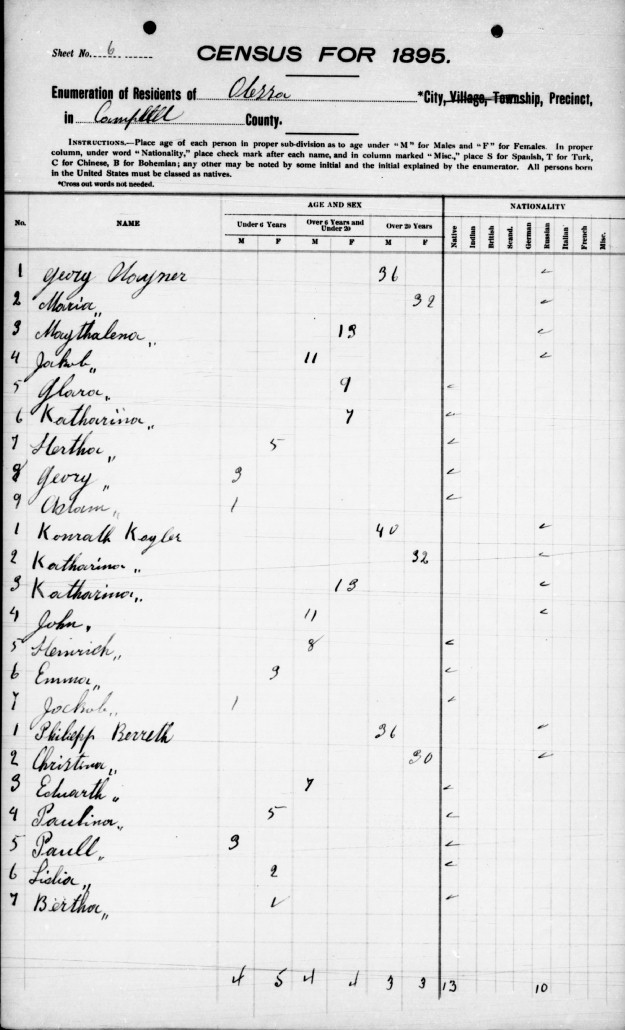 Sheet No. 6
CENSUS FOR 1895.
Enumeration of Residents of Odessa *City, Village, Township, Precinct,
in Campbell County.
INSTRUCTIONS.—Place age of each person in proper sub-division as to age under "M" for Males and "F" for Females. In proper
column, under word "Nationality," place check mark after each name, and in column marked "Misc.," place S for Spanish, T for Turk,
C for Chinese, B for Bohemian; any other may be noted by some initial and the initial explained by the enumerator. All persons born
in the United States must be classed as natives.
*Cross out words not needed.
AGE AND SEX NATIONALITY
No. NAME Under 6 Years Over 6 Years and Under 20 Over 20 Years Native Indian British Scand. German Russian Italian French Misc.
M F M F M F
1 Georg 36 ✓
2 Maria „ 32 ✓
3 Maythalena „ 13 ✓
4 Jakob „ 11 ✓
5 Glara „ 9 ✓
6 Katharina „ 7 ✓
7 Hertha „ 5 ✓
8 Georg „ 3 ✓
9 „ 1 ✓
1 Konrath Keyler 40 ✓
2 Katharina „ 32 ✓
3 Katharina „ 13 ✓
4 John „ 11 ✓
5 Heinrich „ 8 ✓
6 Emma „ 3 ✓
7 Jackob „ 1 ✓
1 Philepp Berreth 36 ✓
2 Christina „ 30 ✓
3 Eduarth „ 7 ✓
4 Paulina „ 5 ✓
5 Paull „ 3 ✓
6 Lidia „ 2 ✓
7 Bertha „ 1 ✓
4 5 4 4 3 3 13 10